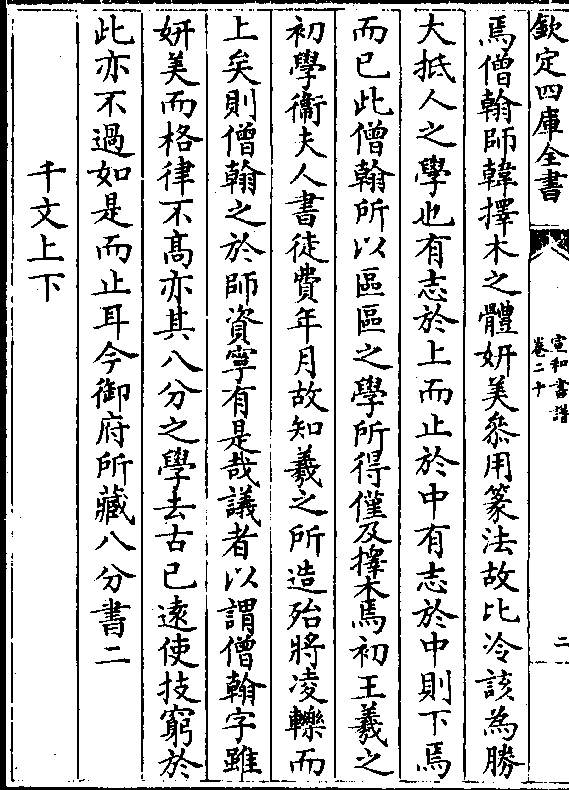 欽定四庫全書
宣和書譜
卷二十
二
焉僧翰師韓擇木之體妍美叅用篆法故比冷該為勝
大抵人之學也有志於上而止於中有志於中則下焉
而已此僧翰所以區區之學所得僅及擇木焉初王羲之
初學衞夫人書徒費年月故知羲之所造殆將凌轢而
上矣則僧翰之於師資寧有是哉議者以謂僧翰字雖
妍美而格律不髙亦其八分之學去古已逺使技窮於
此亦不過如是而止耳今御府所藏八分書二
千文上下